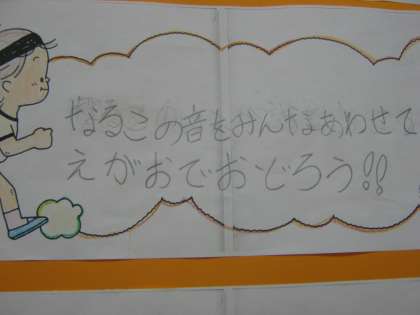 なるこの音をみんなあわせて
えがおでおどろう!!